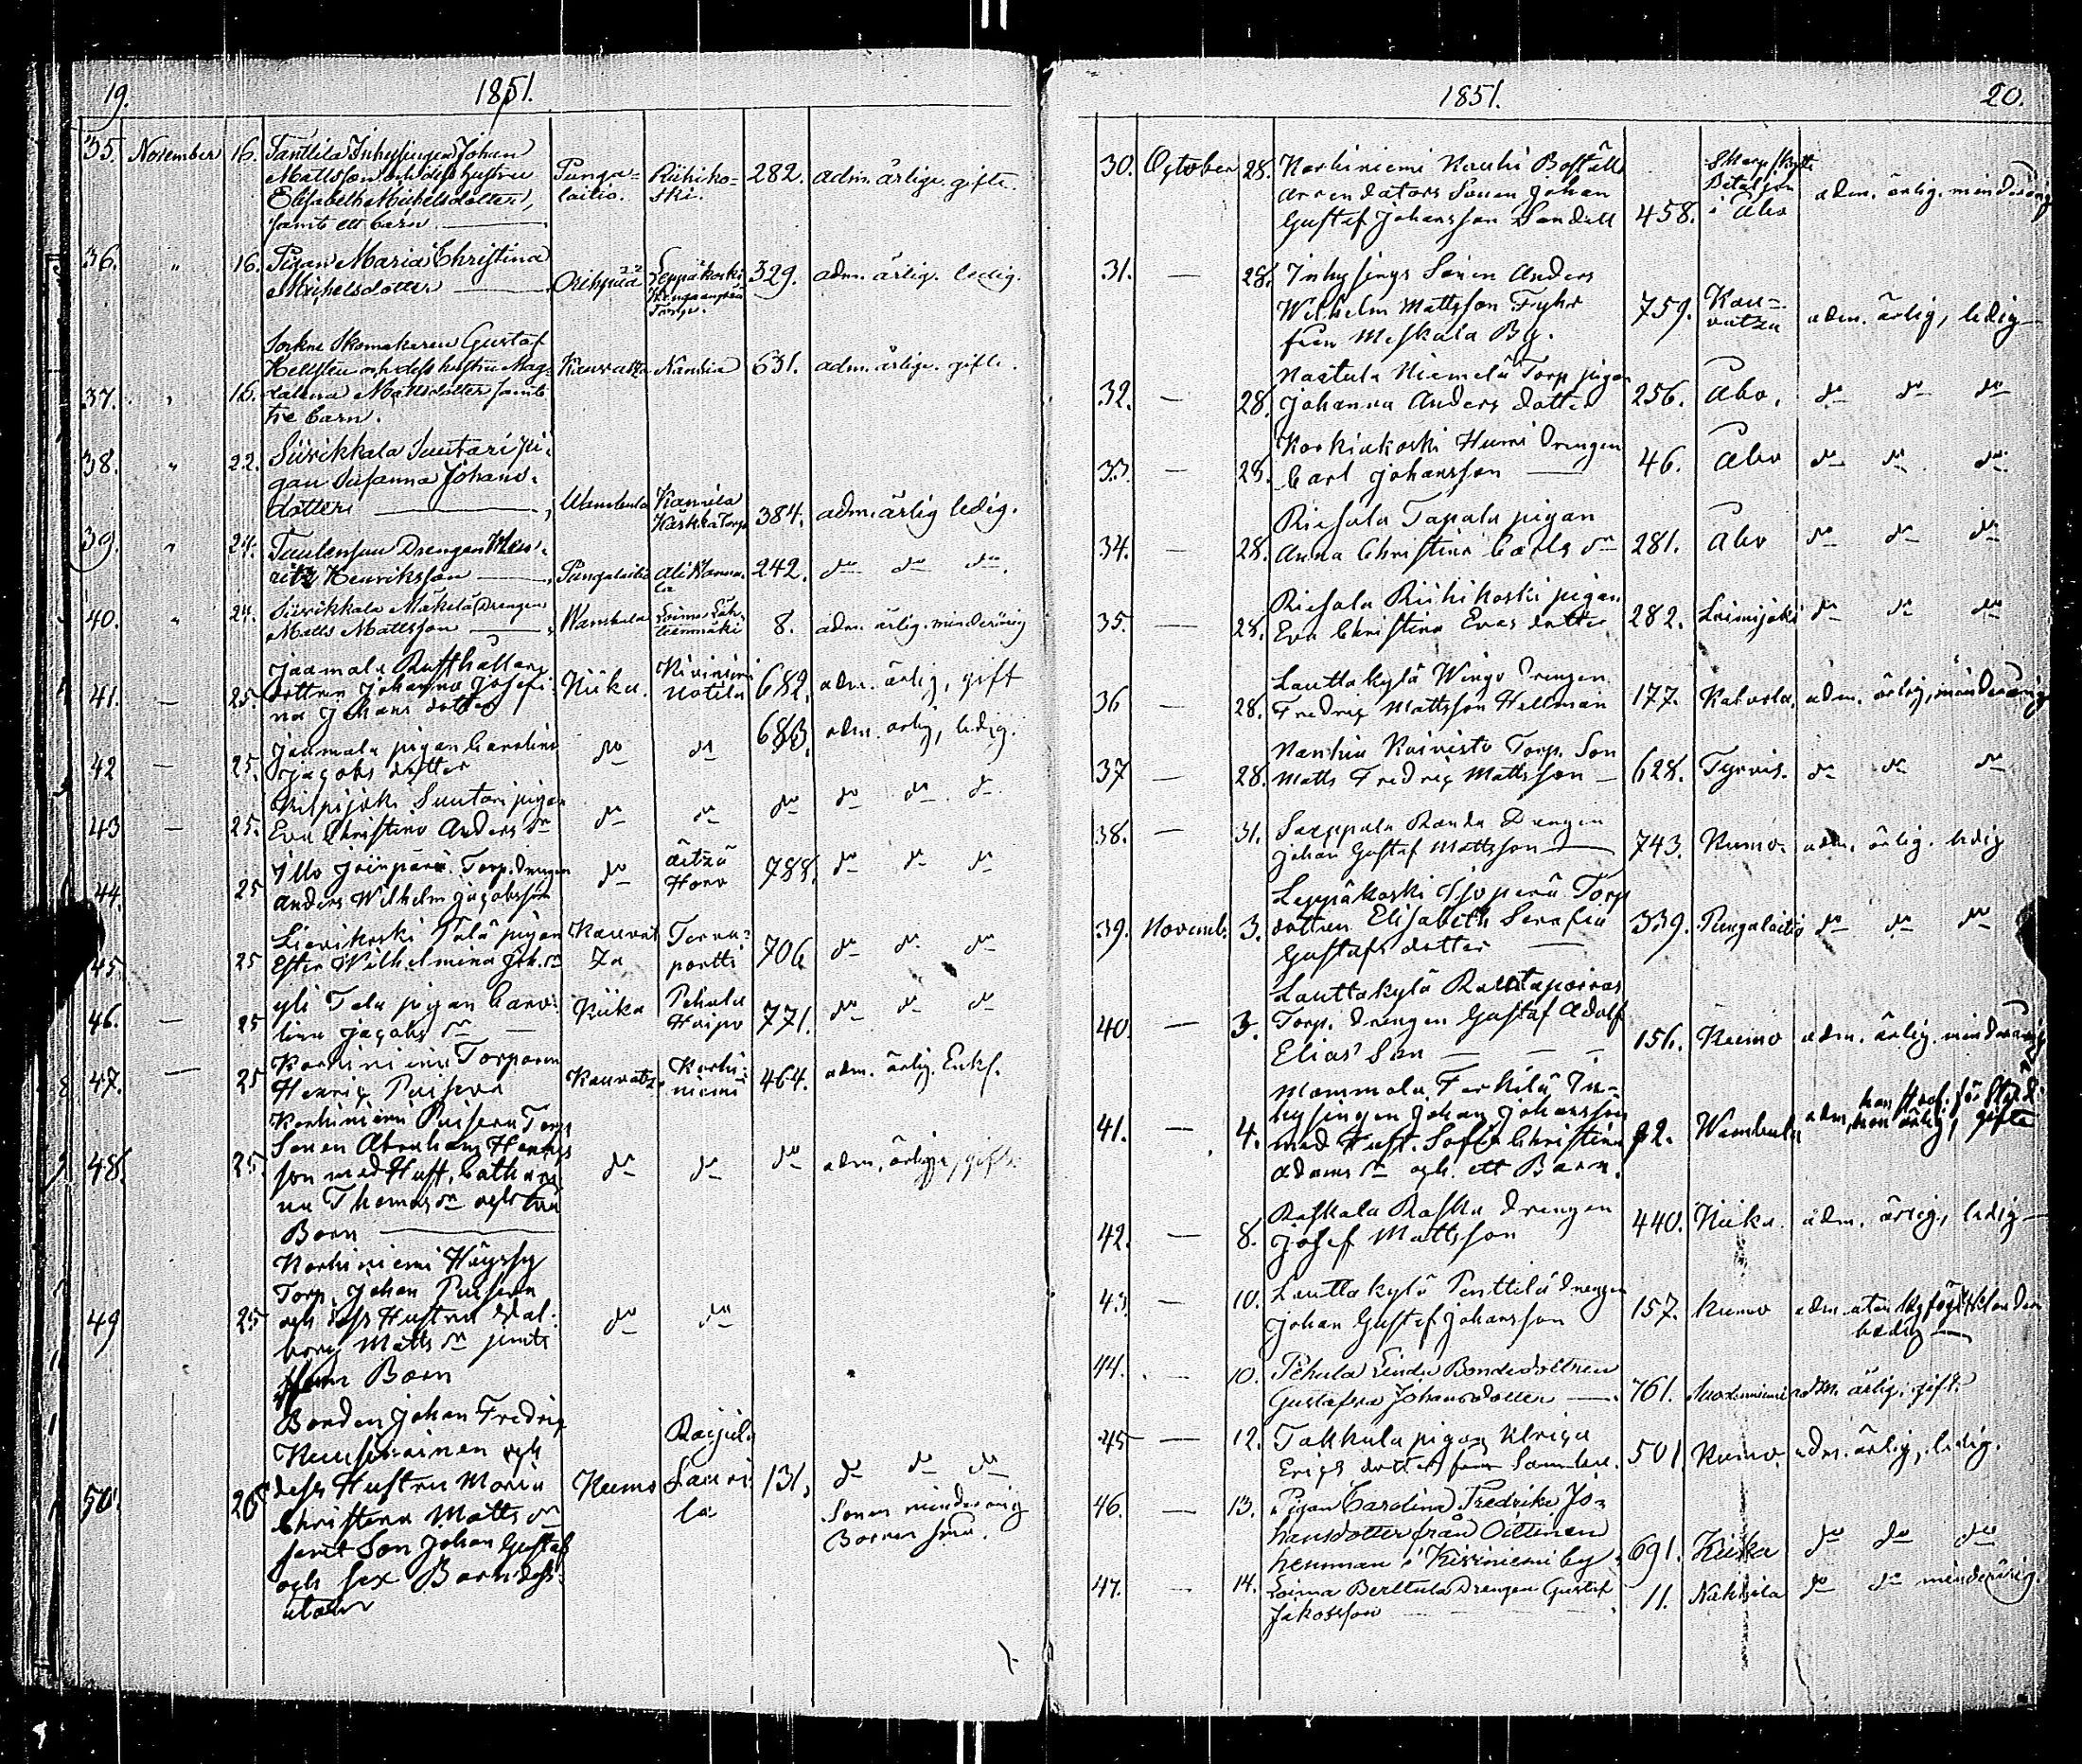 19.
1851.
35. November 16. Tanttila Inhysingen Johan
Mattsson och dess hustru
Elisabeth Michelsdotter,
samt ett barn
Punga-
laitio. Riihiko-
ski. 282. adm. ärlige. gifte.
36. " 16. Pigan Maria Christina
Michelsdotter Oripää Leppäkoski
Torp. 329. adm. ärlig. ledig.
37. " 16. Sockne Skomakaren Gustaf
Hellsten och dess hustru Mag-
dalena Mattsdotter samt
tre barn.
Kauvatza Kandia 631. adm. ärlige. gifte.
38. " 22. Siirikkala Suutari pi-
gan Susanna Johans-
dotter Wambula Kamila
Torp 384. adm. ärlig ledig.
39. " 24. Henriksson Pungalaitio Ali
242. do do do.
40. " 24. Siirikkala Mäkelä Drengen
Matts Mattsson Wambula 8. adm. ärlig. minderårig
41. — 25. Jaamala Rusthållare
dottren Johanna Josefi-
na Johans dotter Kiika. Kiviniemi
Uotila 682. adm. ärlig, gift
42 — 25. Jaamala pigan Carolina
Jacobs dotter do do 683. adm. ärlig, ledig.
43 — 25. Kilpijoki Suutari pigan
Eva Christina Anders dr do do do do do do
44. 25 Illo Torp. drengen
Anders Wilhelm Jacobsson do
788. do do do
45. 25 Lievikoski pigan
Ester Wilhelmina Joh. dr Kauvat
za Terva-
portti 706 do do do
46. — 25 Yli Talu pigan Caro-
lina Jacobs dr — Kiika Pehula
Haipo 771. do do do
47. — 25 Korkiniemi Torparen
Henric Kauvatza Korki-
niemi 464. adm. ärlig. Enkf.
48. 25. Korkiniemi Torp
Sonen Abraham Henrics
son med Hust. Cathari
na Thomas dr och två
Barn
do do do adm. ärlige, gifte.
49 25 Korkiniemi
Torp. Johan
och dess Hustru Wal-
borg Matts dr jemte
Barn
do do
50. 26 Bonden Johan Fredric
och
dess Hustru Maria
Christina Matts dr
samt Son Johan Gustaf
och sex Barn dess-
utom
Kumo Raijala
Lauri
la 131. do do do
Sonen minderårig
Barnen små.
1851.
20.
30. October 28. Korkiniemi Kauhi Boställs
Arrendators Sonen Johan
Gustaf Johansson Sandell 458. Skarpskytte
Bataljon
i Åbo adm. ärlig. minderårig
31. — 28. Inhysings Sonen Anders
Wilhelm Mattsson Fyhr
från Meskala By. 759. Kau-
vatza adm. ärlig, ledig
32. — 28. Naatula Niemelä Torp pigan
Johanna Anders dotter 256. Åbo. do do do
33. — 28. Korkiakoski Humi Drengen
Carl Johansson 46. Åbo do do do
34. — 28. Riesala Tapala pigan
Anna Christina Carls dr 281. Åbo do do do
35. — 28. Riesala Riihikoski pigan
Eva Christina Evas dotter 282. Loimijoki do do do
36 — 28. Lauttakylä Wingo Drengen
Fredric Mattsson Hellman 177. Kakola. adm. ärlig, minderårig
37 — 28. Nanhia Koivisto Torp. Son
Matts Fredric Mattsson — 628. Tyrvis. do do do
38. — 31. Sarppala Randa Drengen
Johan Gustaf Mattsson 743. Kumo. adm. ärlig. ledig
39. Novemb. 3. Leppäkoski Ojanperä Torp
dottren Elisabeth Serafia
Gustafs dotter 339. Pungalaitio do do do
40. — 3. Lauttakylä
Torp. drengen Gustaf Adolf
Elias Son — — — 156. Kumo adm. ärlig. minderårig
41. — 4. Mommola Ferkilä In-
hysingen Johan Johansson
med Hust. Sofia Christina
Adams dr och ett Barn. 92. Wambula adm, hon ärlig, gifte
42. — 8. Raskala Raskka drengen
Josef Mattsson 440. Kiika. adm. ärlig, ledig
43. — 10. Lauttakylä Penttilä drengen
Johan Gustaf Johansson 157. Kumo adm. utan
ledig
44. — 10. Pehula Bondedottren
Gustafva Johansdotter 761. Suodenniemi adm. ärlig. gift.
45 — 12. Takkula pigan Ulrica
Erics dotter från Sammu. 501. Kumo. adm. ärlig, ledig.
46. — 13. Pigan Carolina Fredrika Jo-
hansdotter från Oittinen
hemman i Kiviniemi by. 691. Kiika do do do
47. — 14. Loima Berttula Drengen Gustaf
Jakobsson — — — 11. Nakkila do do minderårig.